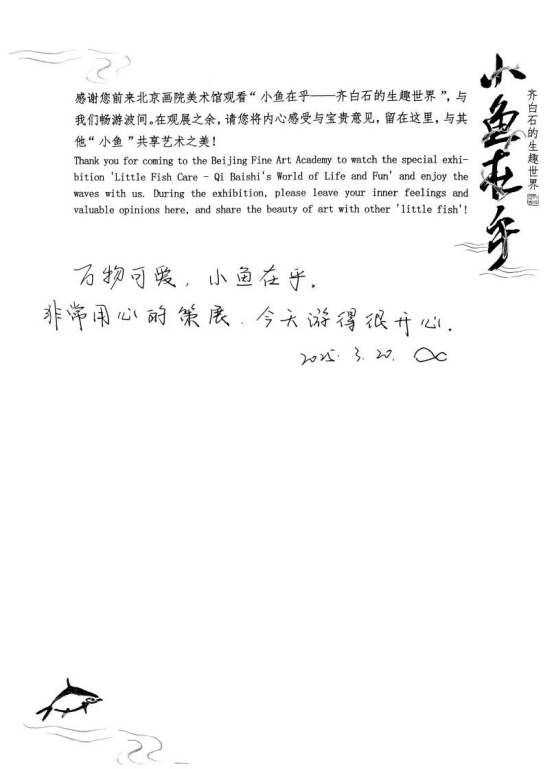 感谢您前来北京画院美术馆观看“小鱼在乎——齐白石的生趣世界”，与
我们畅游波间。在观展之余，请您将内心感受与宝贵意见，留在这里，与其
他“小鱼”共享艺术之美！
Thank you for coming to the Beijing Fine Art Academy to watch the special exhi-
bition 'Little Fish Care - Qi Baishi's World of Life and Fun' and enjoy the
waves with us. During the exhibition, please leave your inner feelings and
valuable opinions here, and share the beauty of art with other 'little fish'!
小鱼在乎
齐白石的生趣世界
万物可爱，小鱼在乎。
非常用心的策展，今天游得很开心。
2025.3.20.